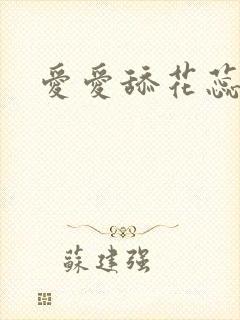 愛愛舔花蕊
蘇建强